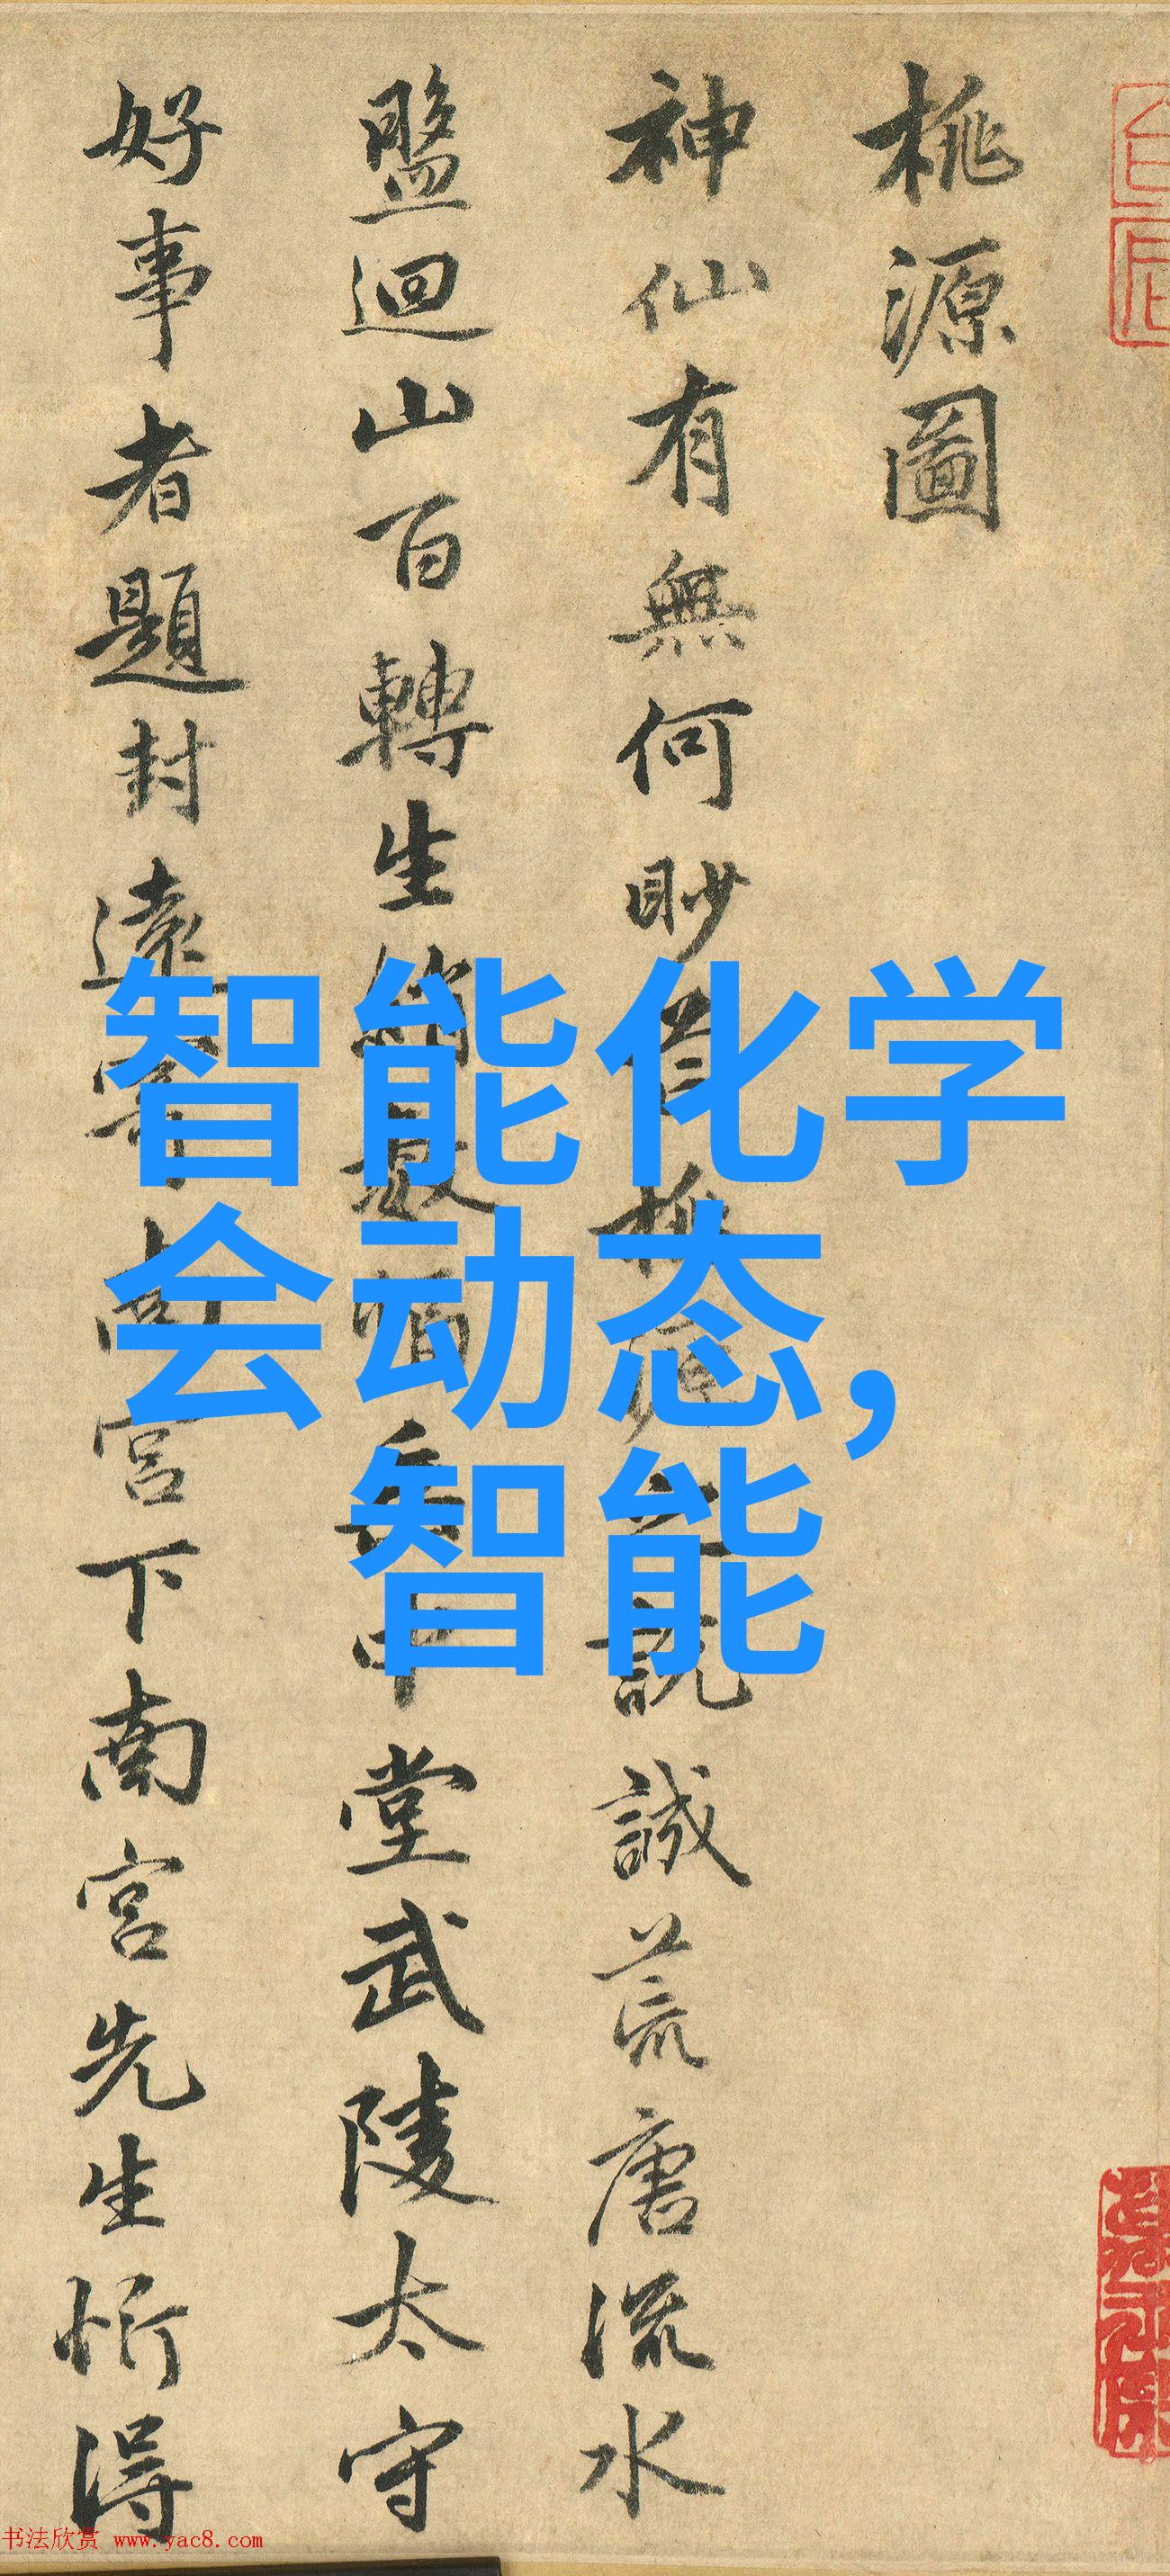 桃源圖
神仙有無何眇芒桃源之說誠荒唐流水
盤迴山百轉生綃數幅垂中堂武陵太守
好事者題封遠寄南宮下南宮先生忻得
智能化学
会动态，
智能
书法欣赏 www.yac8.com